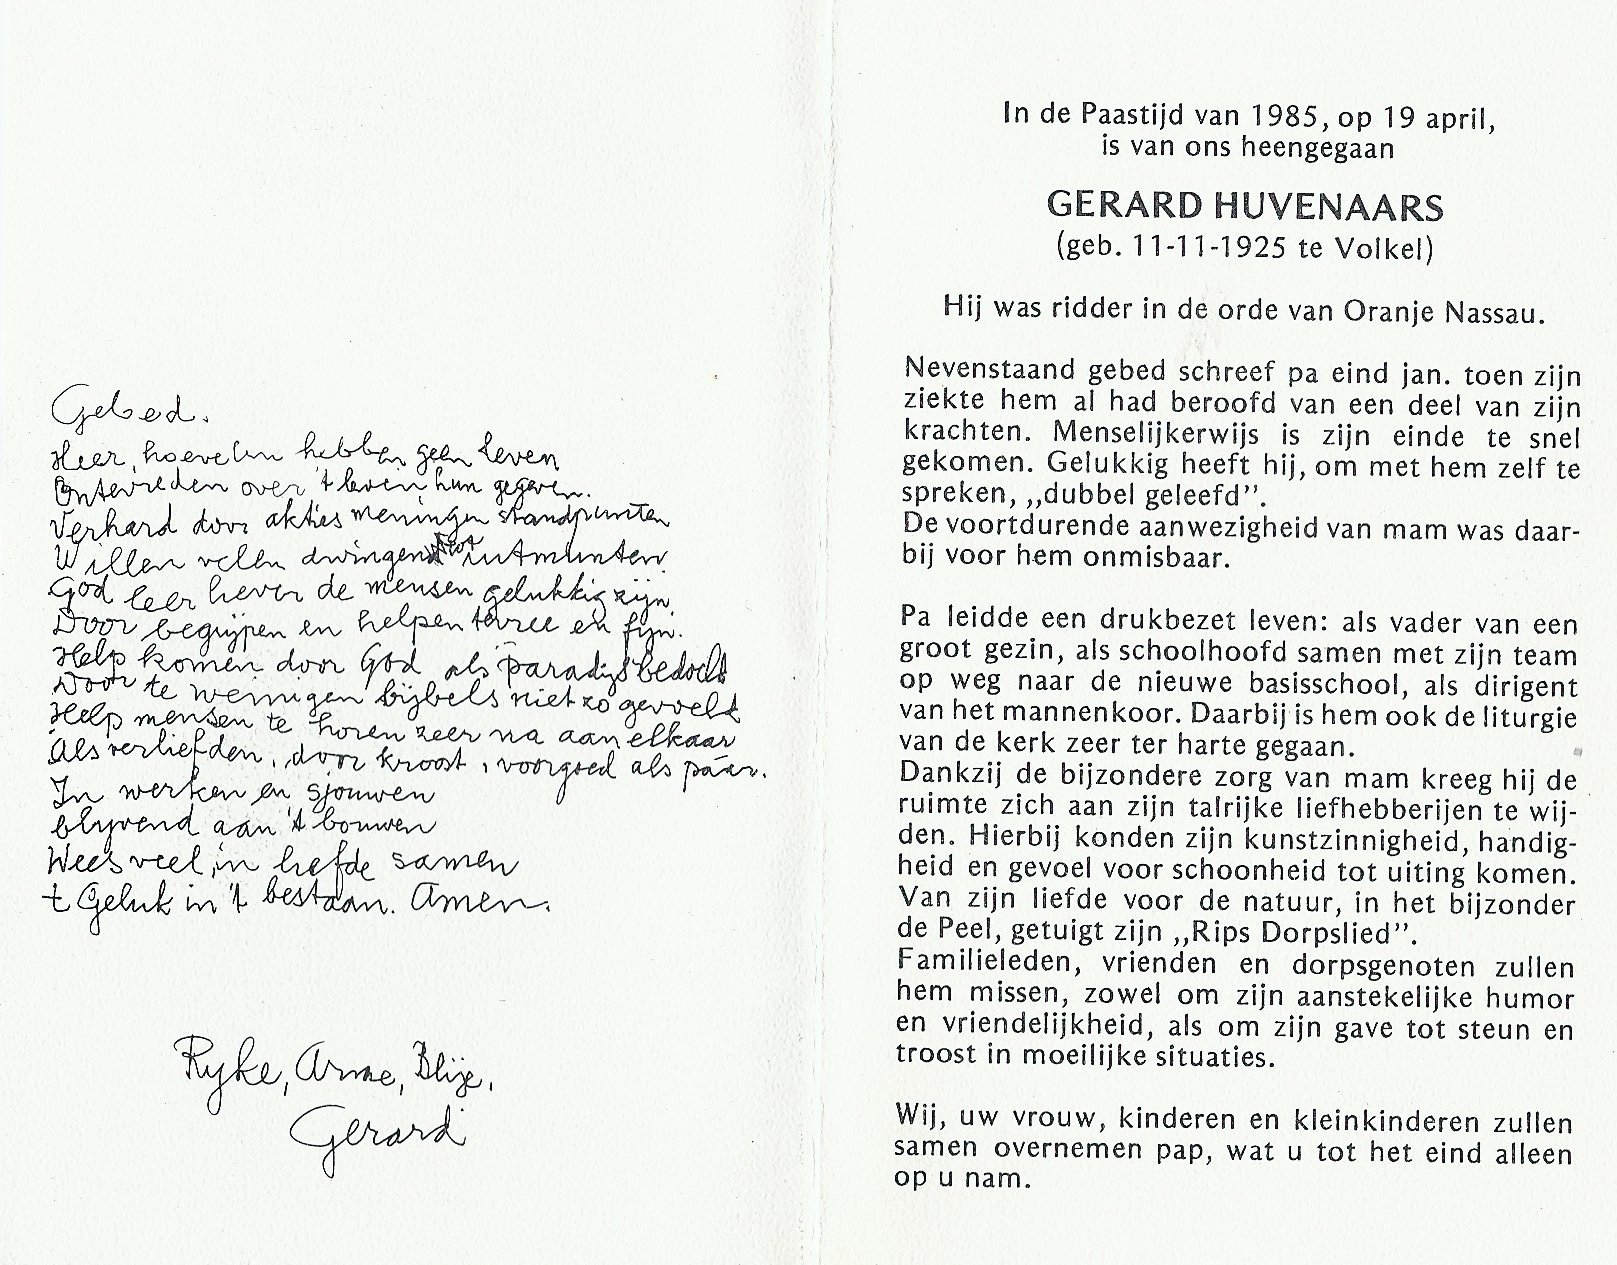 Gebed.
Heer, hoevelen hebben geen leven
Ontevreden over 't leven hun gegeven.
Verhard door akties meningen standpunten
Willen velen dwingend uitmunten.
God leer liever de mensen gelukkig zijn.
Door begrijpen en helpen tevree en fijn.
Help komen door God als paradijs bedacht
Door te weinigen bijbels niet zo gevoeld
Help mensen te horen zeer na aan elkaar
Als verliefden, door kroost, voorgoed als paar.
In werken en sjouwen
blijvend aan 't bouwen
Wees veel in liefde samen
't Geluk in 't bestaan. Amen.
Ryke, Arme, Blije,
Gerard
In de Paastijd van 1985, op 19 april,
is van ons heengegaan
GERARD HUVENAARS
(geb. 11-11-1925 te Volkel)
Hij was ridder in de orde van Oranje Nassau.
Nevenstaand gebed schreef pa eind jan. toen zijn
ziekte hem al had beroofd van een deel van zijn
krachten. Menselijkerwijs is zijn einde te snel
gekomen. Gelukkig heeft hij, om met hem zelf te
spreken, ,,dubbel geleefd”.
De voortdurende aanwezigheid van mam was daar-
bij voor hem onmisbaar.
Pa leidde een drukbezet leven: als vader van een
groot gezin, als schoolhoofd samen met zijn team
op weg naar de nieuwe basisschool, als dirigent
van het mannenkoor. Daarbij is hem ook de liturgie
van de kerk zeer ter harte gegaan.
Dankzij de bijzondere zorg van mam kreeg hij de
ruimte zich aan zijn talrijke liefhebberijen te wij-
den. Hierbij konden zijn kunstzinnigheid, handig-
heid en gevoel voor schoonheid tot uiting komen.
Van zijn liefde voor de natuur, in het bijzonder
de Peel, getuigt zijn ,,Rips Dorpslied”.
Familieleden, vrienden en dorpsgenoten zullen
hem missen, zowel om zijn aanstekelijke humor
en vriendelijkheid, als om zijn gave tot steun en
troost in moeilijke situaties.
Wij, uw vrouw, kinderen en kleinkinderen zullen
samen overnemen pap, wat u tot het eind alleen
op u nam.